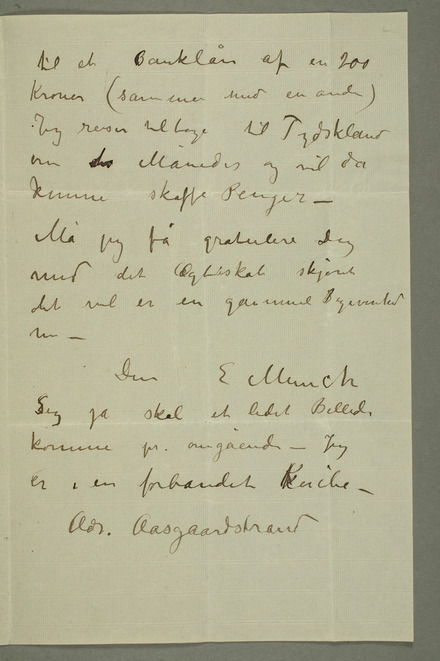 til et Banklån af en 200
Kroner (sammen med en anden)
Jeg reiser tilbage til Tydskland
om Måneder og vil da
kunne skaffe Penger —
Må jeg få gratulere Dig
med det Ægteskab skjønt
det vel er en gammel Begivenhed
nu —
Din E Munch
Sig ja skal et lidet Billede
komme pr. omgående — Jeg
er i en forbandet Knibe —
Adr. Aasgaardstrand